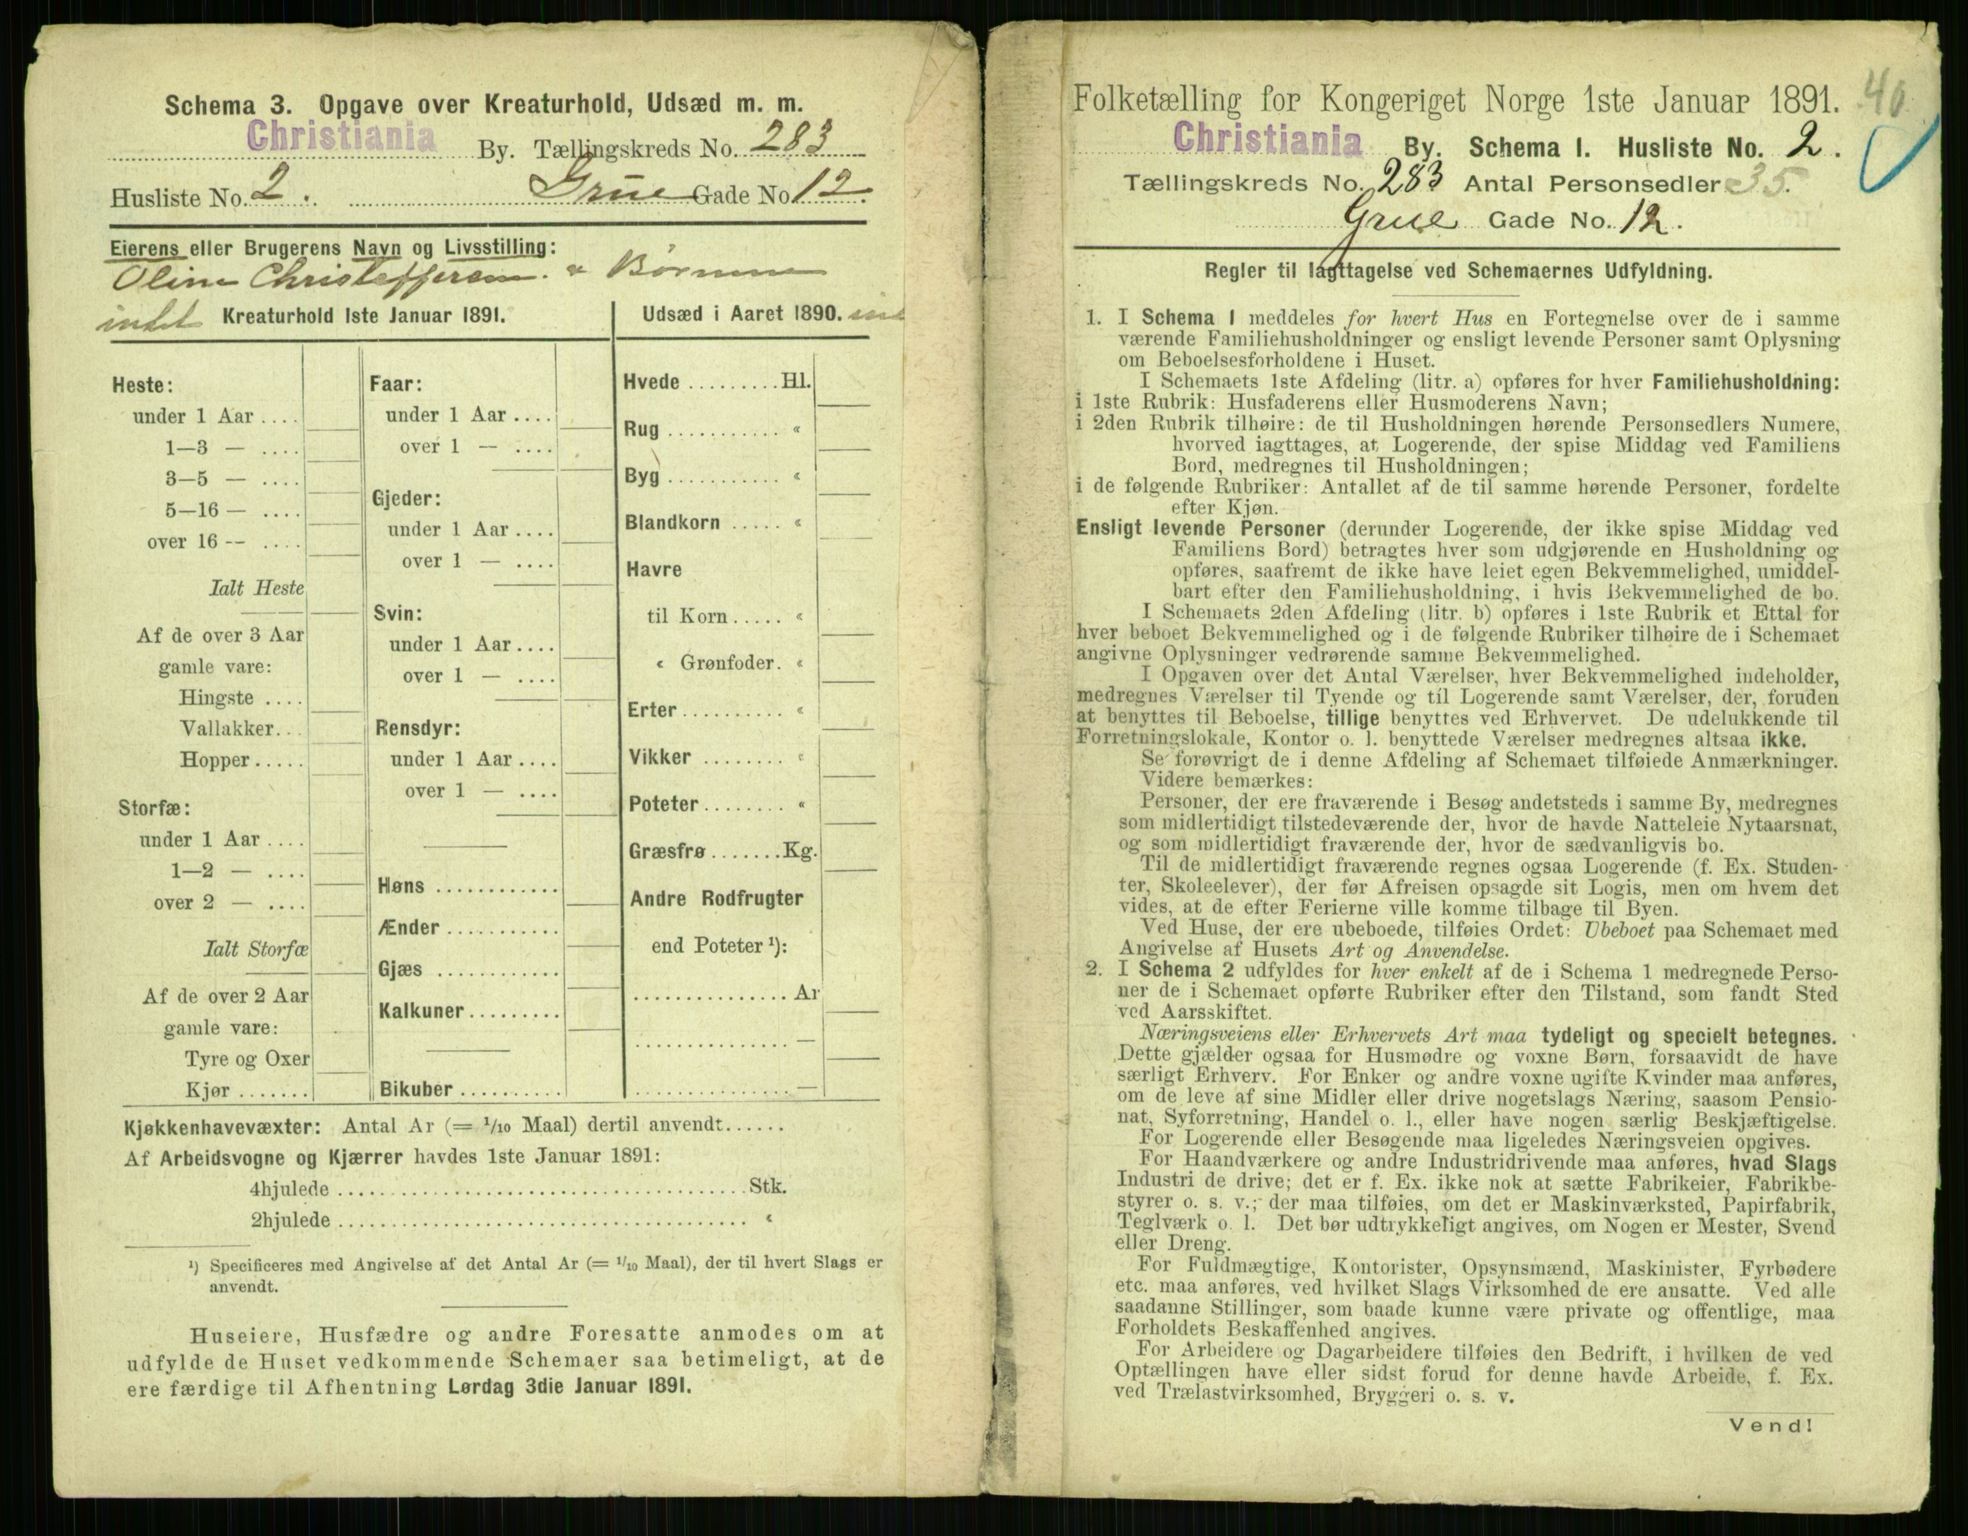 Schema 3. Opgave over Kreaturhold, Udsæd m. m.
Christiania By. Tællingskreds No. 283
Husliste No. 2. Grue Gade No 12.
Eierens eller Brugerens Navn og Livsstilling:
Oline Christeffersen. &
intet Kreaturhold 1ste Januar 1891. Udsæd i Aaret 1890.
Heste:
under 1 Aar ....
1—3 — ....
3—5 — ....
5—16 — ....
over 16 — ....
Ialt Heste
Af de over 3 Aar
gamle vare:
Hingste ....
Vallakker...
Hopper.....
Storfæ:
under 1 Aar ....
1—2 — ....
over 2 — ....
Ialt Storfæ
Af de over 2 Aar
gamle vare:
Tyre og Oxer
Kjør .......
Faar:
under 1 Aar ....
over 1 — ....
Gjeder:
under 1 Aar ....
over 1 — ....
Svin:
under 1 Aar....
over 1 — ....
Rensdyr:
under 1 Aar....
over 1 — ....
Høns ............
Ænder ...........
Gjæs ............
Kalkuner.........
Bikuber ..........
Hvede .........Hl.
Rug ........... «
Byg ........... «
Blandkorn ..... «
Havre
til Korn..... «
« Grønfoder. «
Erter.......... «
Vikker ........ «
Poteter........ «
Græsfrø.......Kg.
Andre Rodfrugter
end Poteter ¹):
............... Ar
............... —
............... —
Kjøkkenhavevæxter: Antal Ar (= 1/10 Maal) dertil anvendt......
Af Arbeidsvogne og Kjærrer havdes 1ste Januar 1891:
4hjulede ........................................Stk.
2hjulede ........................................ «
¹) Specificeres med Angivelse af det Antal Ar (= 1/10 Maal), der til hvert Slags er
anvendt.
Huseiere, Husfædre og andre Foresatte anmodes om at
udfylde de Huset vedkommende Schemaer saa betimeligt, at de
ere færdige til Afhentning Lørdag 3die Januar 1891.
Folketælling for Kongeriget Norge 1ste Januar 1891. 40
Christiania By. Schema I. Husliste No. 2.
Tællingskreds No. 283 Antal Personsedler 35.
Grue Gade No. 12.
Regler til Iagttagelse ved Schemaernes Udfyldning.
1. I Schema 1 meddeles for hvert Hus en Fortegnelse over de i samme
værende Familiehusholdninger og ensligt levende Personer samt Oplysning
om Beboelsesforholdene i Huset.
I Schemaets 1ste Afdeling (litr. a) opføres for hver Familiehusholdning:
i 1ste Rubrik: Husfaderens eller Husmoderens Navn;
i 2den Rubrik tilhøire: de til Husholdningen hørende Personsedlers Numere,
hvorved iagttages, at Logerende, der spise Middag ved Familiens
Bord, medregnes til Husholdningen;
i de følgende Rubriker: Antallet af de til samme hørende Personer, fordelte
efter Kjøn.
Ensligt levende Personer (derunder Logerende, der ikke spise Middag ved
Familiens Bord) betragtes hver som udgjørende en Husholdning og
opføres, saafremt de ikke have leiet egen Bekvemmelighed, umiddel-
bart efter den Familiehusholdning, i hvis Bekvemmelighed de bo.
I Schemaets 2den Afdeling (litr. b) opføres i 1ste Rubrik et Ettal for
hver beboet Bekvemmelighed og i de følgende Rubriker tilhøire de i Schemaet
angivne Oplysninger vedrørende samme Bekvemmelighed.
I Opgaven over det Antal Værelser, hver Bekvemmelighed indeholder,
medregnes Værelser til Tyende og til Logerende samt Værelser, der, foruden
at benyttes til Beboelse, tillige benyttes ved Erhvervet. De udelukkende til
Forretningslokale, Kontor o. l. benyttede Værelser medregnes altsaa ikke.
Se forøvrigt de i denne Afdeling af Schemaet tilføiede Anmærkninger.
Videre bemærkes:
Personer, der ere fraværende i Besøg andetsteds i samme By, medregnes
som midlertidigt tilstedeværende der, hvor de havde Natteleie Nytaarsnat,
og som midlertidigt fraværende der, hvor de sædvanligvis bo.
Til de midlertidigt fraværende regnes ogsaa Logerende (f. Ex. Studen-
ter, Skoleelever), der før Afreisen opsagde sit Logis, men om hvem det
vides, at de efter Ferierne ville komme tilbage til Byen.
Ved Huse, der ere ubeboede, tilføies Ordet: Ubeboet paa Schemaet med
Angivelse af Husets Art og Anvendelse.
2. I Schema 2 udfyldes for hver enkelt af de i Schema 1 medregnede Perso-
ner de i Schemaet opførte Rubriker efter den Tilstand, som fandt Sted
ved Aarsskiftet.
Næringsveiens eller Erhvervets Art maa tydeligt og specielt betegnes.
Dette gjælder ogsaa for Husmødre og voxne Børn, forsaavidt de have
særligt Erhverv. For Enker og andre voxne ugifte Kvinder maa anføres,
om de leve af sine Midler eller drive nogetslags Næring, saasom Pensio-
nat, Syforretning, Handel o. l., eller have nogen særlig Beskjæftigelse.
For Logerende eller Besøgende maa ligeledes Næringsveien opgives.
For Haandværkere og andre Industridrivende maa anføres, hvad Slags
Industri de drive; det er f. Ex. ikke nok at sætte Fabrikeier, Fabrikbe-
styrer o. s. v.; der maa tilføies, om det er Maskinværksted, Papirfabrik,
Teglværk o. l. Det bør udtrykkeligt angives, om Nogen er Mester, Svend
eller Dreng.
For Fuldmægtige, Kontorister, Opsynsmænd, Maskinister, Fyrbødere
etc. maa anføres, ved hvilket Slags Virksomhed de ere ansatte. Ved alle
saadanne Stillinger, som baade kunne være private og offentlige, maa
Forholdets Beskaffenhed angives.
For Arbeidere og Dagarbeidere tilføies den Bedrift, i hvilken de ved
Optællingen have eller sidst forud for denne havde Arbeide, f. Ex.
ved Trælastvirksomhed, Bryggeri o. s. v.
Vend!